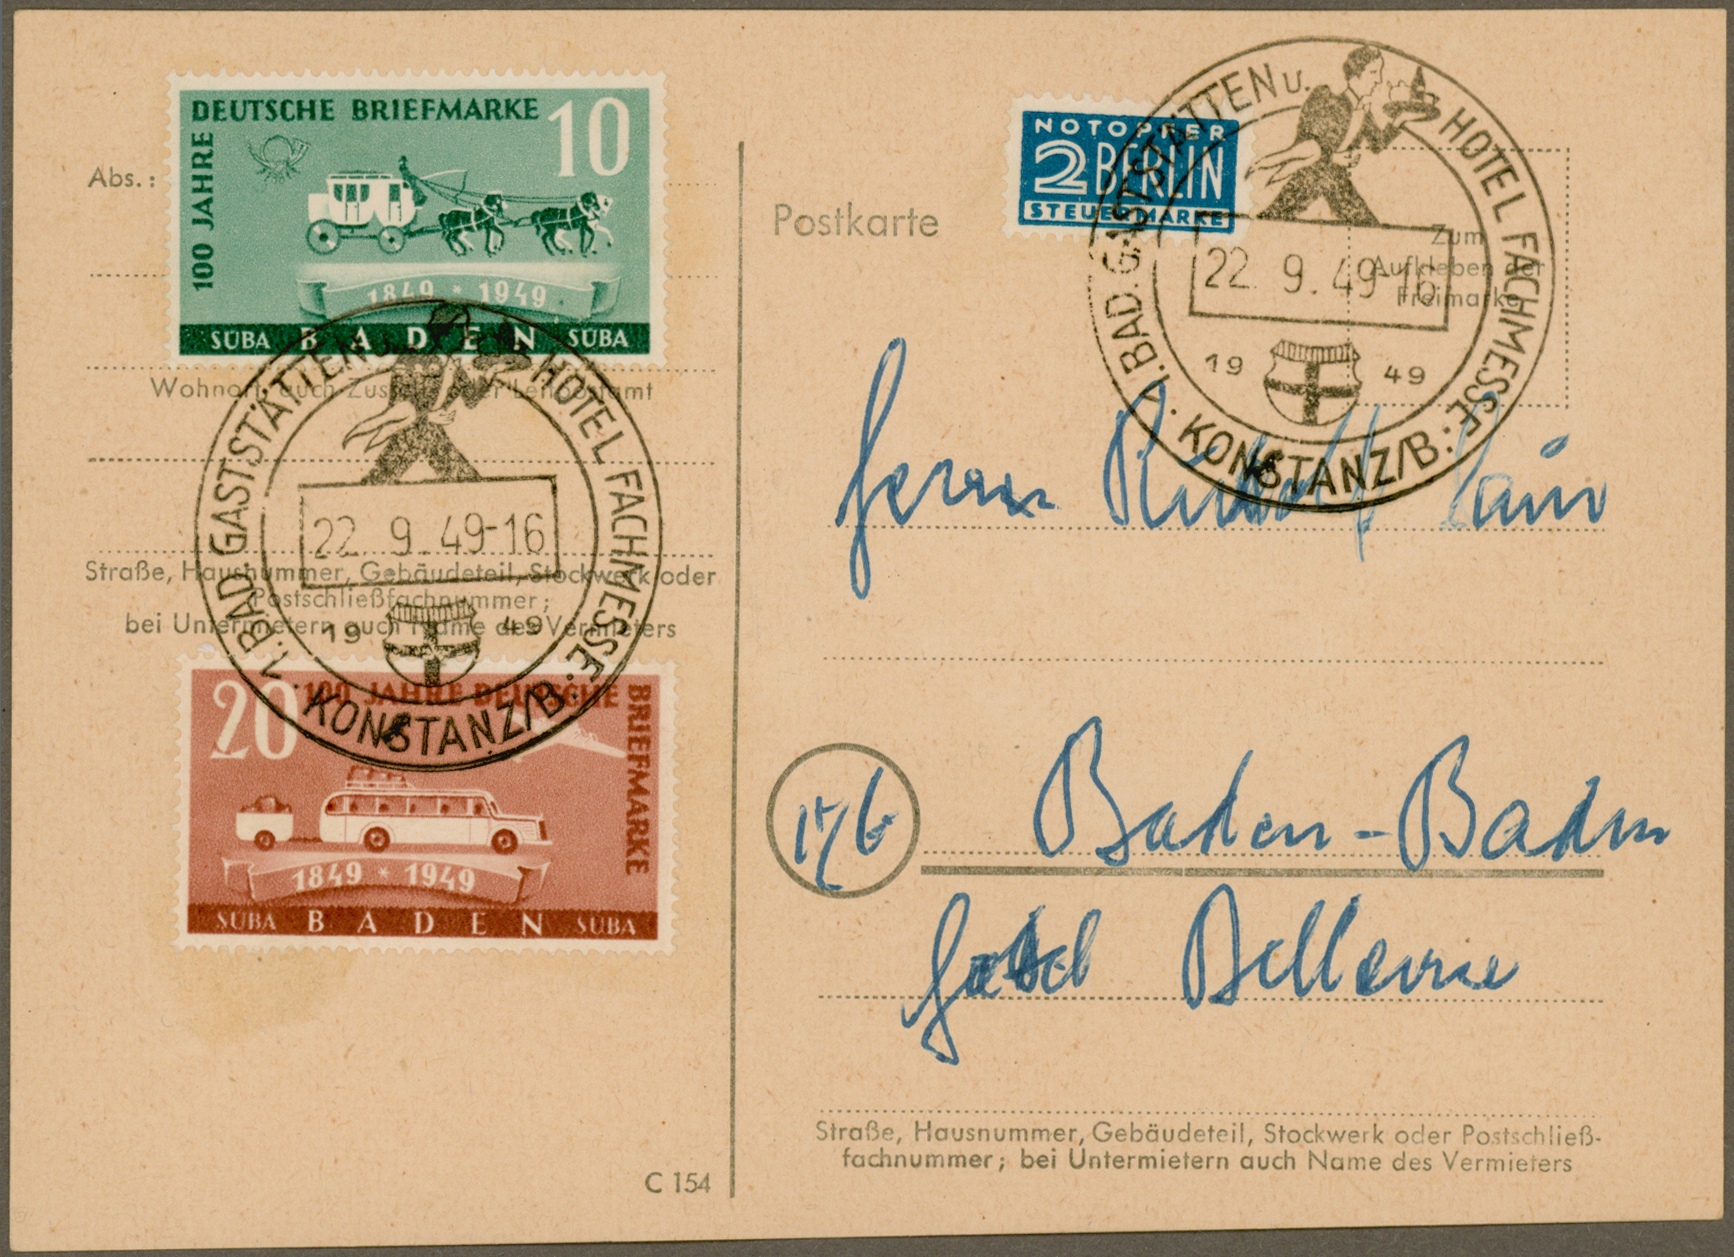 100 JAHRE
DEUTSCHE BRIEFMARKE
10
1849 * 1949
SÜBA BADEN SÜBA
Abs.:
Wohnort, auch Zustell- oder Leitpostamt
1. BAD. GASTSTÄTTEN U. HOTEL FACHMESSE
22.9.49-16
19 49
KONSTANZ/B.
Straße, Hausnummer, Gebäudeteil, Stockwerk oder
Postschließfachnummer;
bei Untermietern auch Name des Vermieters
20
100 JAHRE DEUTSCHE
BRIEFMARKE
1849 * 1949
SÜBA BADEN SÜBA
C 154
Postkarte
NOTOPFER
2 BERLIN
STEUERMARKE
1. BAD. GASTSTÄTTEN U. HOTEL FACHMESSE
22.9.49-16
19 49
KONSTANZ/B.
Zum
Aufkleben der
Freimarke
Herrn Rudolf
17b
Baden-Baden
Hotel Bellevue
Straße, Hausnummer, Gebäudeteil, Stockwerk oder Postschließ-
fachnummer; bei Untermietern auch Name des Vermieters